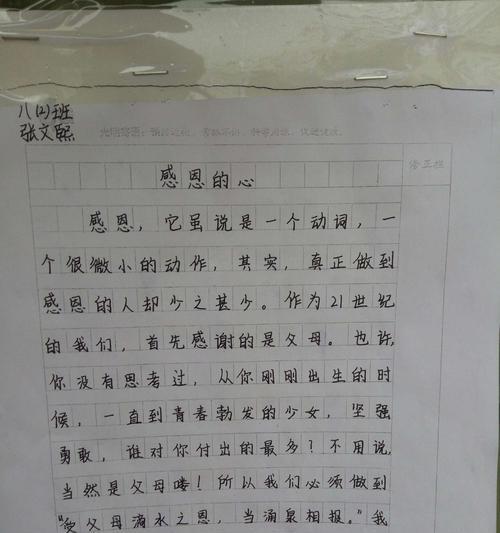 八(2)班
张文熙
修正栏
感恩的心
感恩，它虽说是一个动词，一
个很微小的动作，其实，真正做到
感恩的人却少之甚少。作为21世纪
的我们，首先感谢的是父母。也许，
你没有思考过，从你刚刚出生的时
候，一直到青春勃发的少女，坚强
勇敢，谁对你付出的最多？不用说，
当然是父母喽！所以我们必须做到
“受父母滴水之恩，当涌泉相报。”我